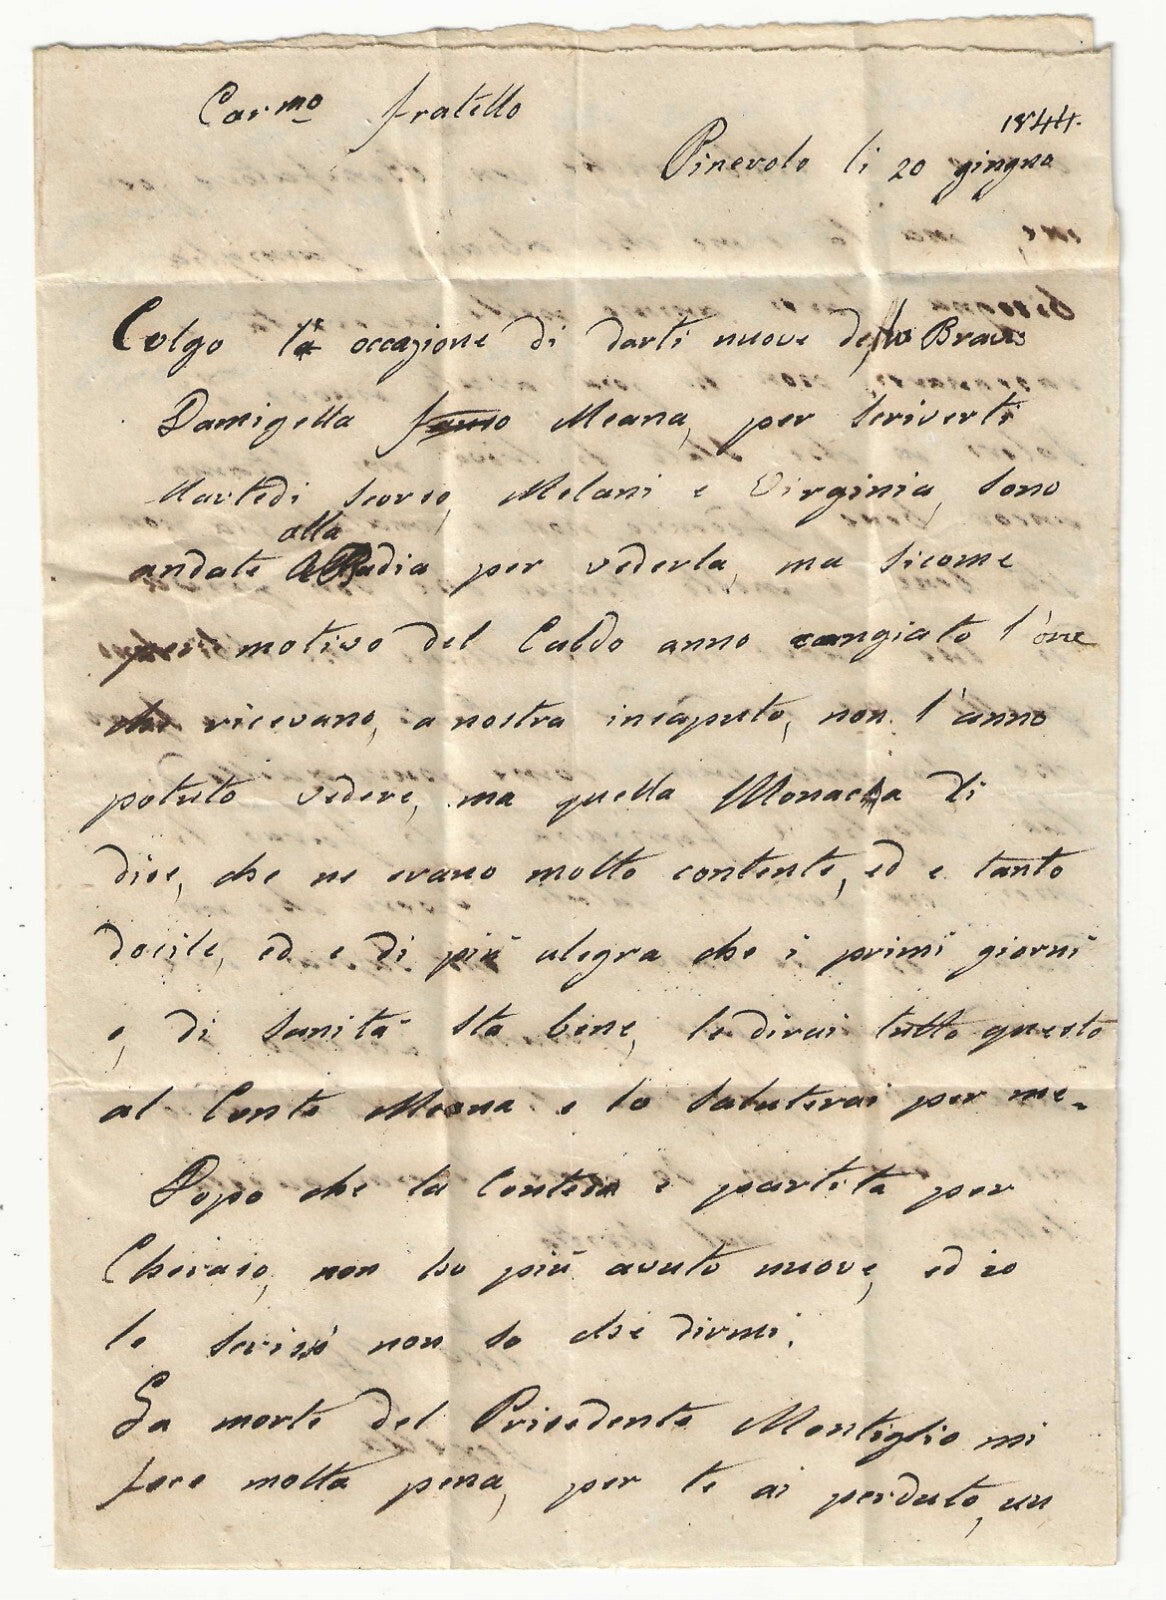 Car.mo fratello
1844.
Pinerolo li 20 giugno
Colgo l'a occazione di darti nuove della Brava
Damigella Meana, per scriverti
Martedi scorso, Melani e Virginia, sono
alla
andate Abadia per vederla, ma sicome
per motivo del Caldo anno cangiato l'ore
che ricevano, a nostra insaputo, non l'anno
potuto vedere, ma quella Monacha li
dise, che ne erano molto contente, ed e tanto
docile, ed e di più alegra che i primi giorni
e, di sanità sta bene, le dirai tutto questo
al Conte Meana e lo saluterai per me.
Dopo che la Contesa e partita per
Cheraso, non ho più avuto nuove, ed io
le scrissi non so che dirmi.
La morte del Prisedente Montiglio mi
fece molta pena, per te ai perduto, un